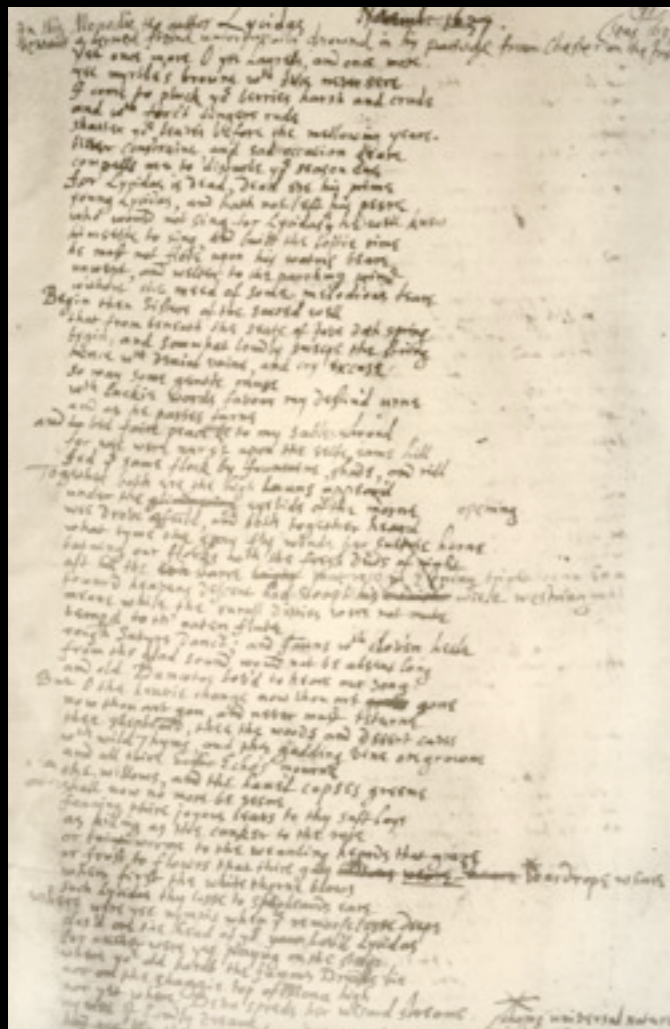 Lycidas Novemb: 1637.
In this Monodie the author bewails a
lerned freind unfortunatly drownd in his passage from Chester on the
Yet once more O ye laurels, and once more
yee myrtle's browne wth Ivie never sere
I come to pluck yor berries harsh and crude
and wth forc't fingers rude
shatter yor leaves before the mellowing yeare.
bitter constraint, and sad occasion deare
compells me to disturbe yor season due
for Lycidas is dead, dead ere his prime
young Lycidas, and hath not left his peere
who would not sing for Lycidas he well knew
himselfe to sing, and build the loftie rime
he must not flote upon his watrie beare
unwept, and welter to the parching wind
without the meed of some melodious teare
Begin then Sisters of the sacred well
that from beneath the seate of Jove doth spring
begin, and somwhat loudly sweepe the string
hence wth deniall vaine, and coy excuse
so may some gentle muse
wth luckie words favour my destin'd urne
and as he passes turne
and bid faire peace be to my sable shroud
for wee were nurst upon the selfe same hill
fed ye same flock by fountaine, shade, and rill
Together both ere the high launs appear'd
under the eyelids of the morne opening
wee drove afeild, and both together heard
what tyme the gray fly winds her sultrie horne
batning our flocks wth the fresh dews of night
oft till the
toward heavens descent had slop't his wheele westring
meane while the rurall ditties were not mute
temper'd to th' oaten flute
rough Satyrs danc't, and Fauns wth cloven heele
from the glad sound would not be absent long
and old Damætas lov'd to heare our song
But O the heavie change now thou art gone
now thou art gon, and never must returne
thee shepheard, thee the woods and desert caves
wth wild Thyme, and the gadding vine oregrowne
and all thire echo's mourne
the willows, and the hazel copses greene
shall now no more be seene
fanning thire joyous leaves to thy soft lays
as killing as the canker to the rose
or taint worme to the weanling heards that graze
or frost to flowers that thire gay wardrope weare
when first the white thorne blows
such Lycidas thy losse to shepheards eare
where were yee nymphs when ye remorselesse deepe
clos'd ore the head of yor lov'd Lycidas
for neither were yee playing on the steepe
where yor old bards the famous Druids lie
nor on the shaggie top of Mona high
nor yet where Deva spreds her wisard streame
universal nature